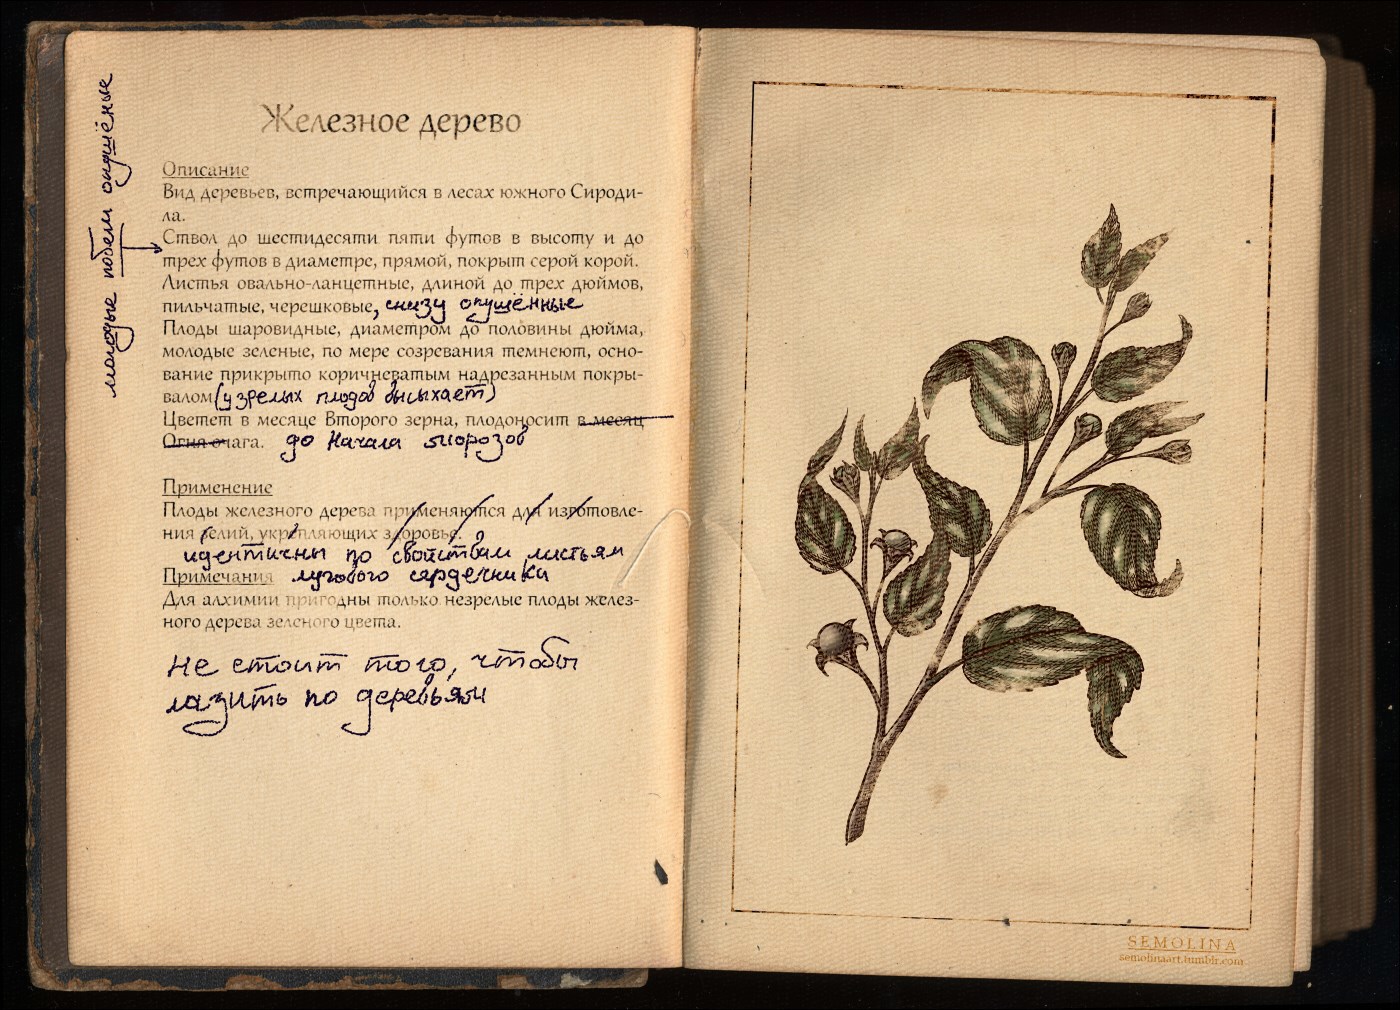 Железное дерево
молодые побеги опушёные
Описание
Вид деревьев, встречающийся в лесах южного Сироди-
ла.
Ствол до шестидесяти пяти футов в высоту и до
трех футов в диаметре, прямой, покрыт серой корой.
Листья овально-ланцетные, длиной до трех дюймов,
пильчатые, черешковые, снизу опушённые
Плоды шаровидные, диаметром до половины дюйма,
молодые зеленые, по мере созревания темнеют, осно-
вание прикрыто коричневатым надрезанным покры-
валом (у зрелых плодов высыхает)
Цветет в месяце Второго зерна, плодоносит в месяц
Огня очага. до начала морозов
Применение
Плоды железного дерева применяются для изготовле-
ния зелий, укрепляющих здоровье.
идентичны по свойствам листьям
лугового сердечника
Примечания
Для алхимии пригодны только незрелые плоды желез-
ного дерева зеленого цвета.
Не стоит того, чтобы
лазить по деревьям
SEMOLINA
semolinaart.tumblr.com